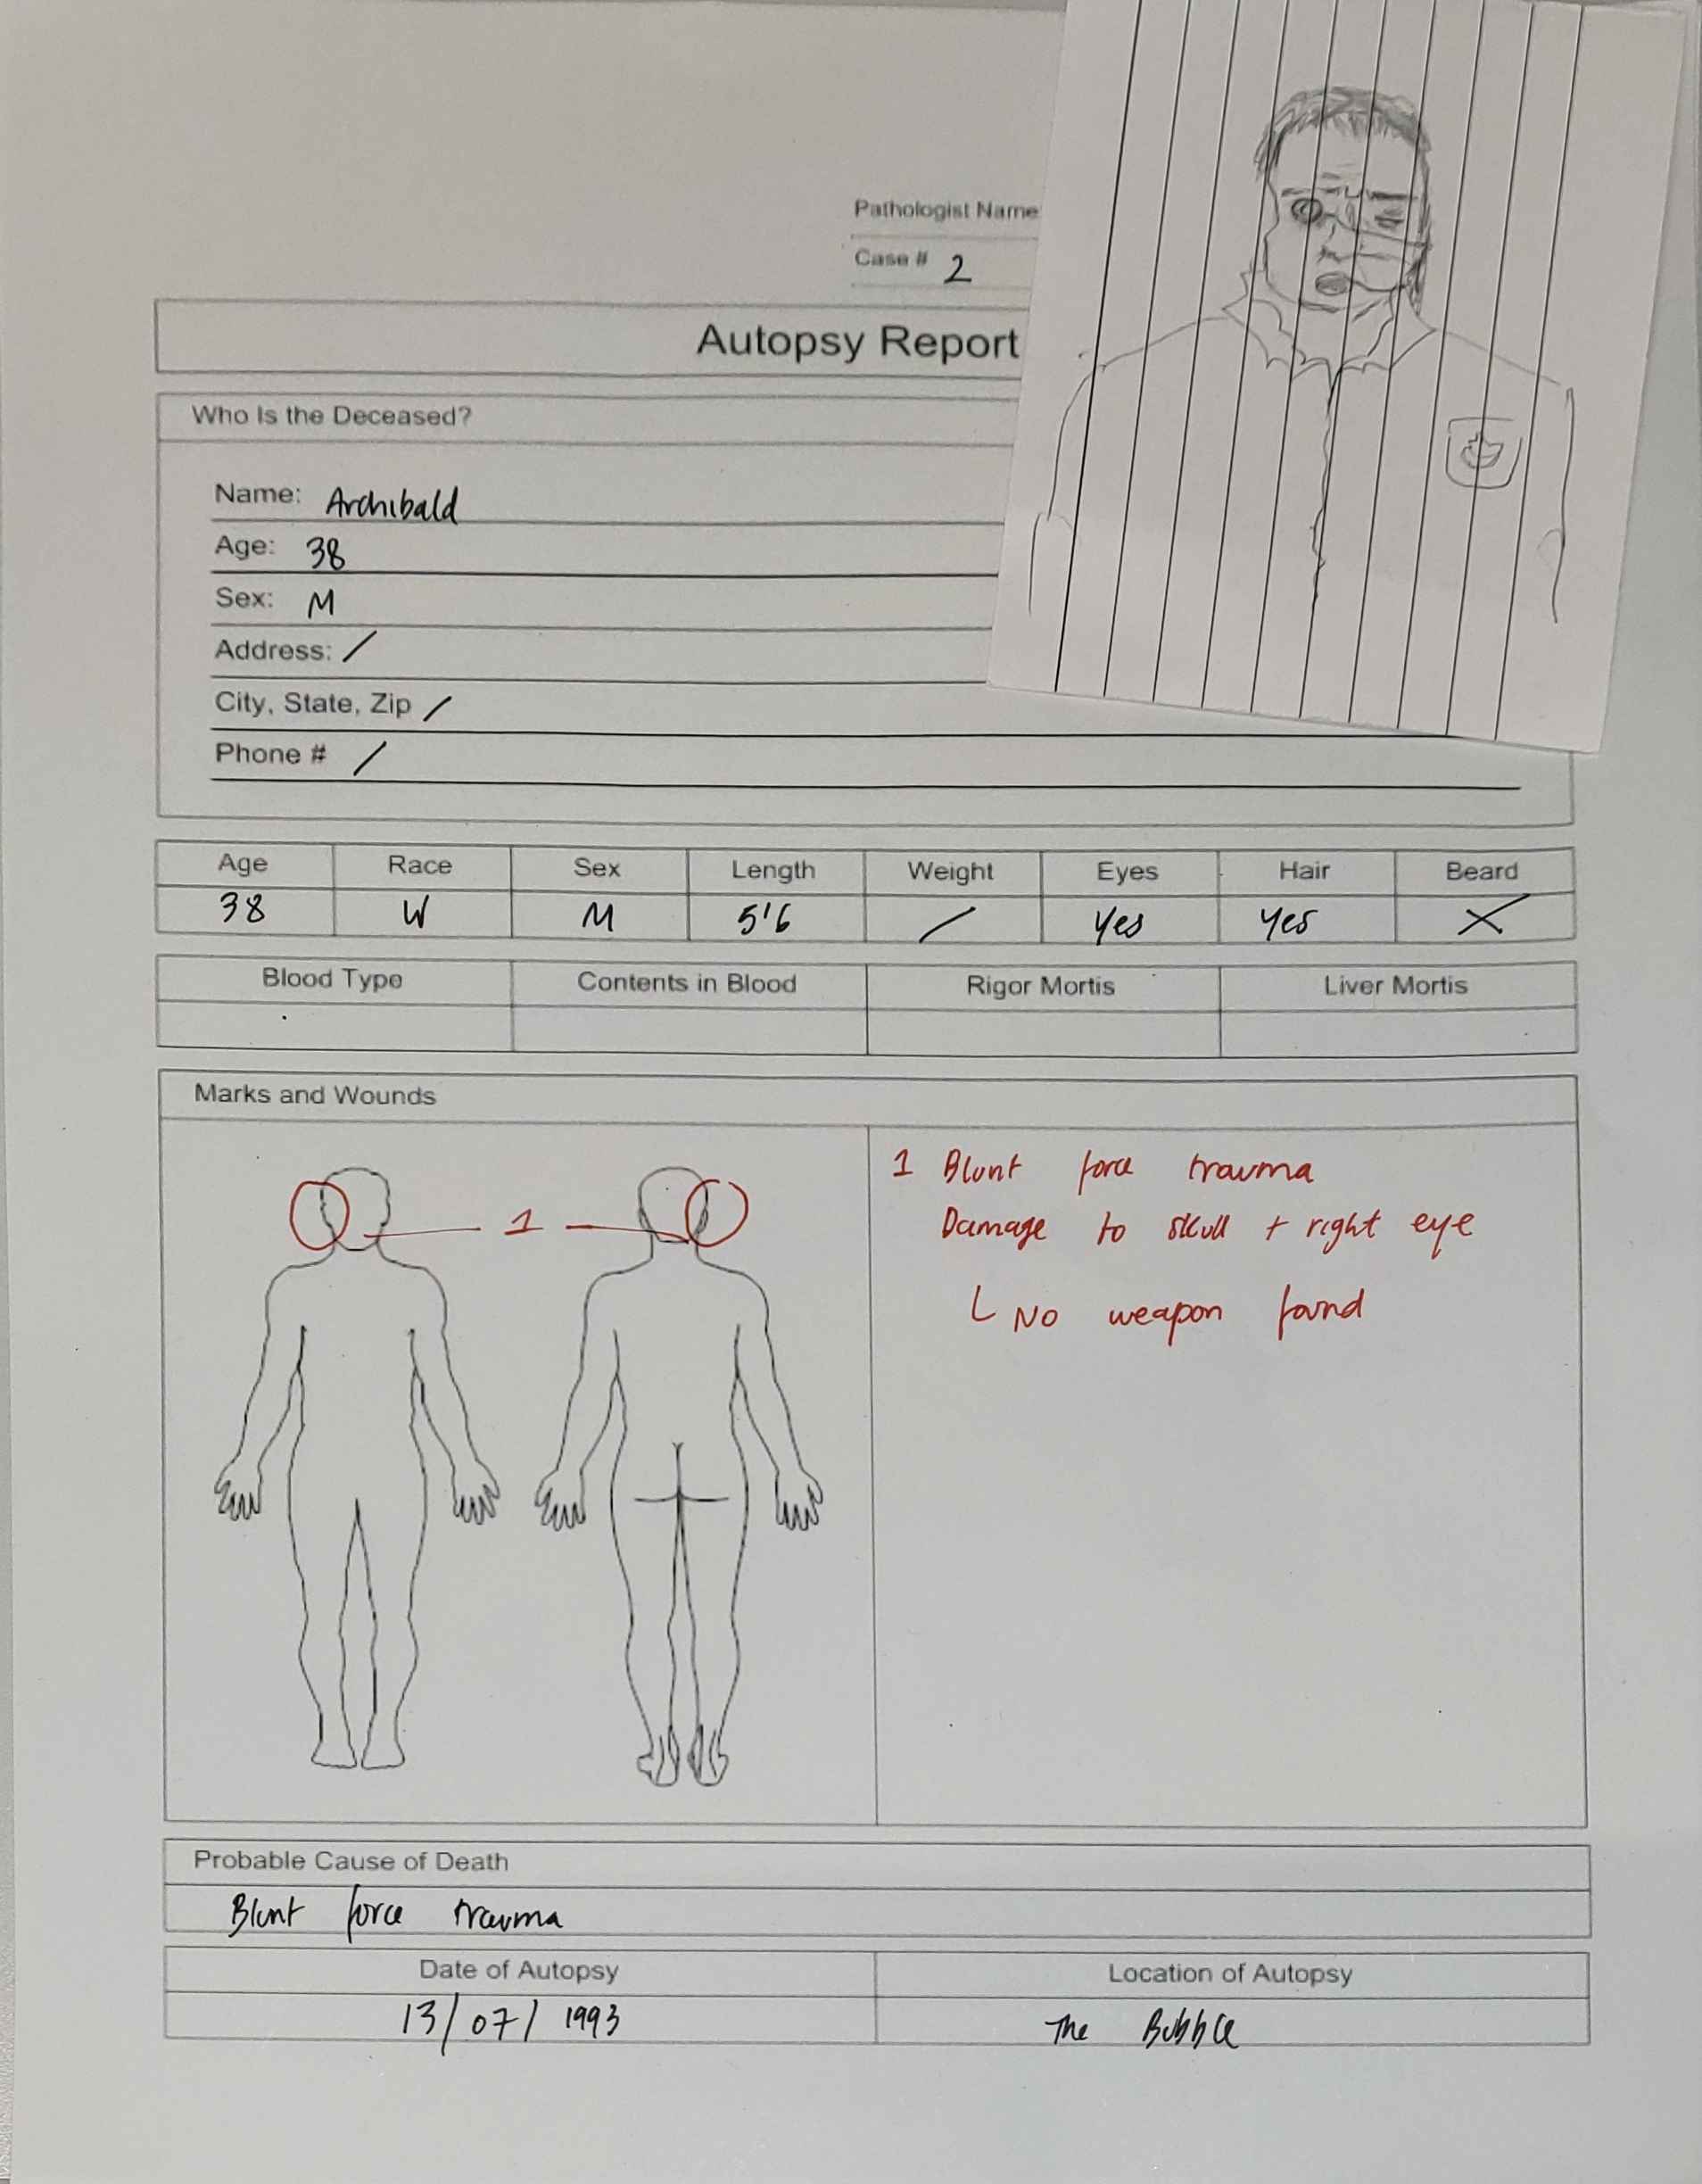 Pathologist Name
Case # 2
Autopsy Report
Who Is the Deceased?
Name: Archibald
Age: 38
Sex: M
Address: /
City, State, Zip /
Phone # /
Age Race Sex Length Weight Eyes Hair Beard
38 W M 5'6 / Yes Yes X
Blood Type Contents in Blood Rigor Mortis Liver Mortis
Marks and Wounds
1 Blunt force trauma
Damage to skull + right eye
L No weapon found
1
Probable Cause of Death
Blunt force trauma
Date of Autopsy Location of Autopsy
13/07/1993 The Bubble